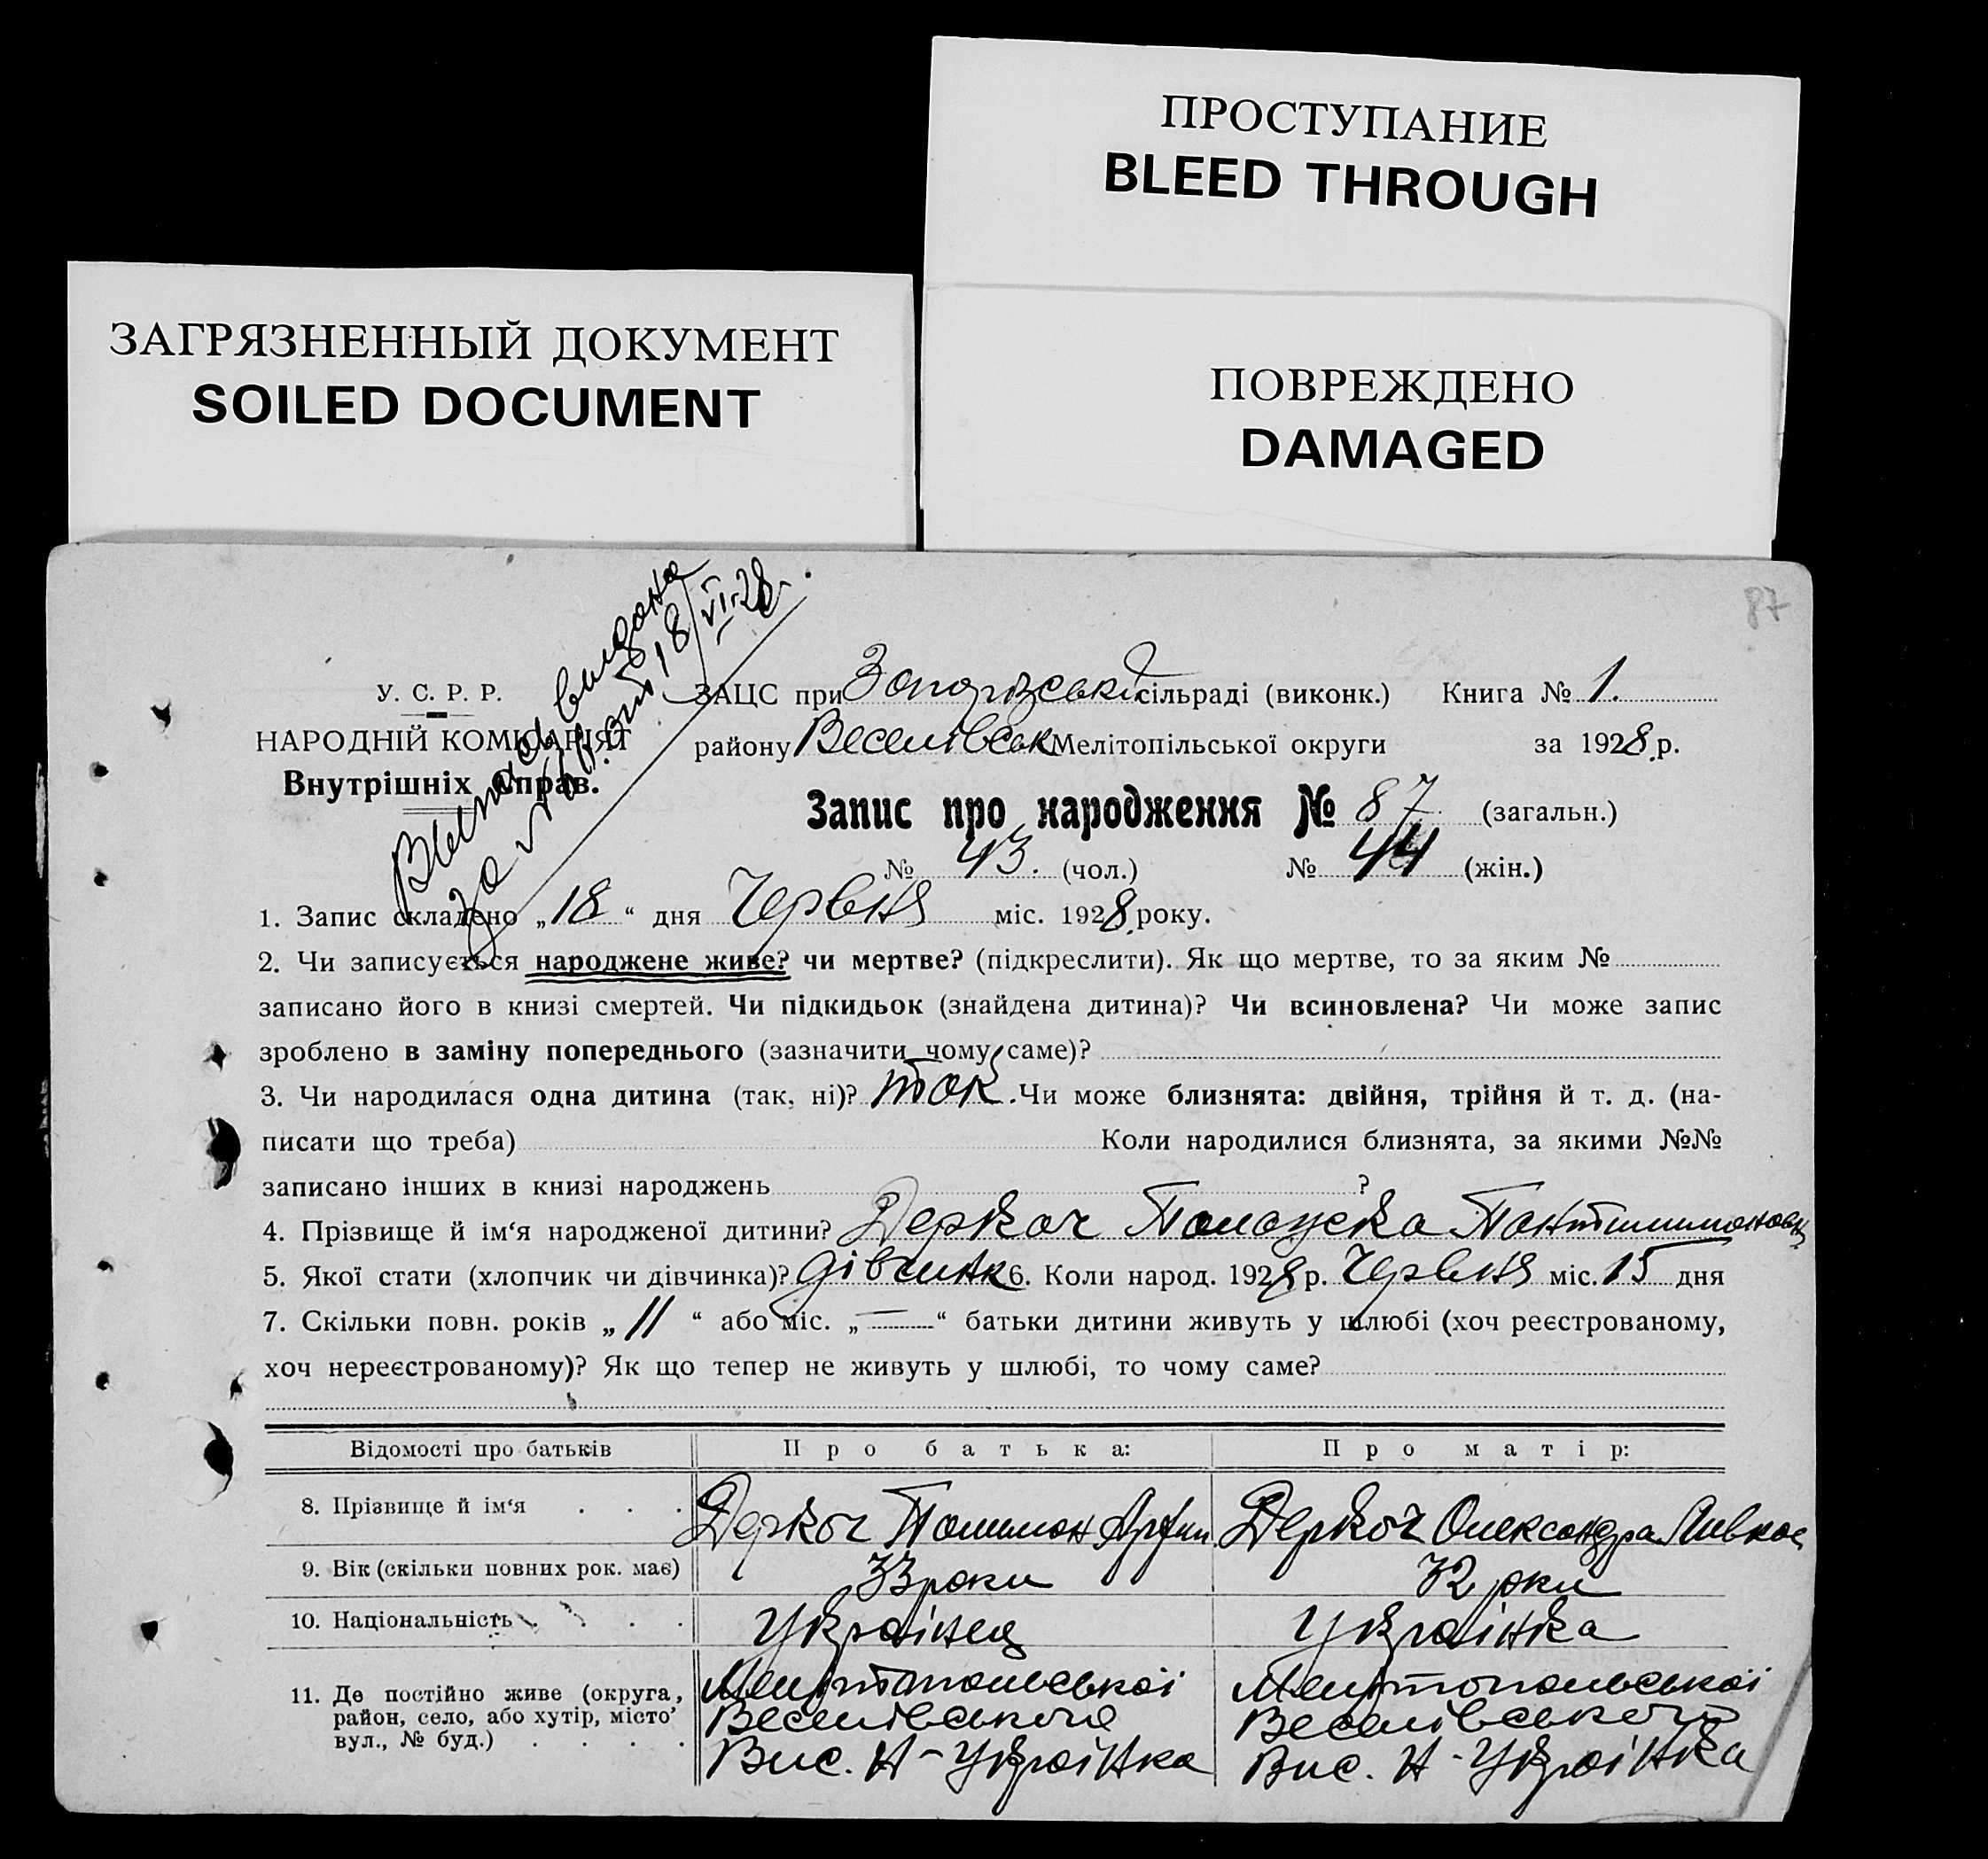 ПРОСТУПАНИЕ
BLEED THROUGH
ЗАГРЯЗНЕННЫЙ ДОКУМЕНТ
SOILED DOCUMENT
ПОВРЕЖДЕНО
DAMAGED
87
Выпись выдана
за № 18/VI-28
У. С. Р. Р.
НАРОДНІЙ КОМІСАРІЯТ
Внутрішніх Справ.
ЗАЦС при Запорізській сільраді (виконк.) Книга № 1.
району Веселівськ Мелітопільської округи за 1928 р.
Запис про народження № 87 (загальн.)
№ 43. (чол.) № 44 (жін.)
1. Запис складено „18“ дня Червня міс. 1928 року.
2. Чи записується народжене живе? чи мертве? (підкреслити). Як що мертве, то за яким №
записано його в книзі смертей. Чи підкидьок (знайдена дитина)? Чи всиновлена? Чи може запис
зроблено в заміну попереднього (зазначити чому саме)?
3. Чи народилася одна дитина (так, ні)? так. Чи може близнята: двійня, трійня й т. д. (на-
писати що треба) Коли народилися близнята, за якими №№
записано інших в книзі народжень ?
4. Прізвище й ім‘я народженої дитини? Деркач
5. Якої стати (хлопчик чи дівчинка)? дівчинк 6. Коли народ. 1928 р. Червня міс. 15 дня
7. Скільки повн. років „11“ або міс. „—“ батьки дитини живуть у шлюбі (хоч реєстрованому,
хоч нереєстрованому)? Як що тепер не живуть у шлюбі, то чому саме?
Відомості про батьків Про батька: Про матір:
8. Прізвище й ім‘я . . . Деркач Деркач Олександра
9. Вік (скільки повних рок. має) 33 роки 32 рки
10. Національність . . . . Українец Українка
11. Де постійно живе (округа, Мелітопольської Мелітопольської
район, село, або хутір, місто, Веселівського Веселівського
вул., № буд.) . . . . Вис. Н-Українка Вис. Н-Українка